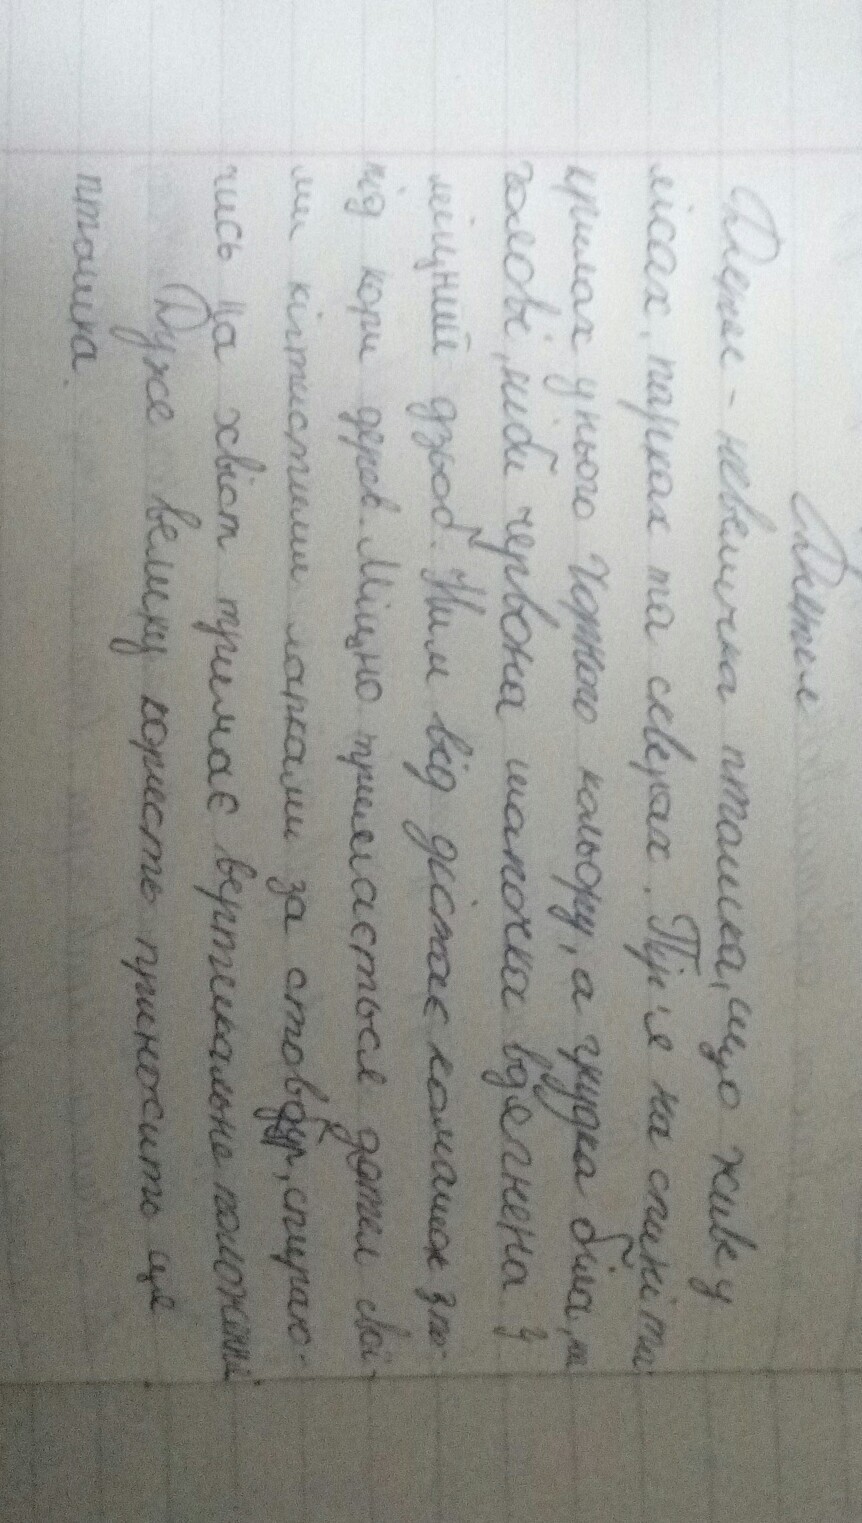 Дятел
Дятел - невеличка пташка, що живе у
лісах, парках та скверах. Пір'я на спині та
крилах у нього чорного кольору, а грудка біла, на
голові, ніби червона шапочка вдягнена. У
міцний дзьоб. Ним він дістає комашок з-по-
під кори дерев. Міцно тримається дятел свої-
ми кігтистими лапками за стовбур, спираю-
чись на хвіст тримає вертикальне положення
Дуже велику користь приносить ця
пташка.